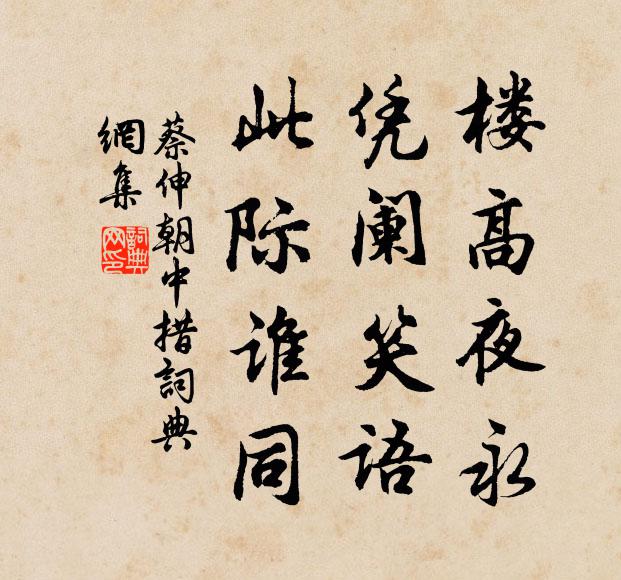 楼高夜永
凭阑笑语
此际谁同
蔡伸朝中措詞典
網集
詞典
网印